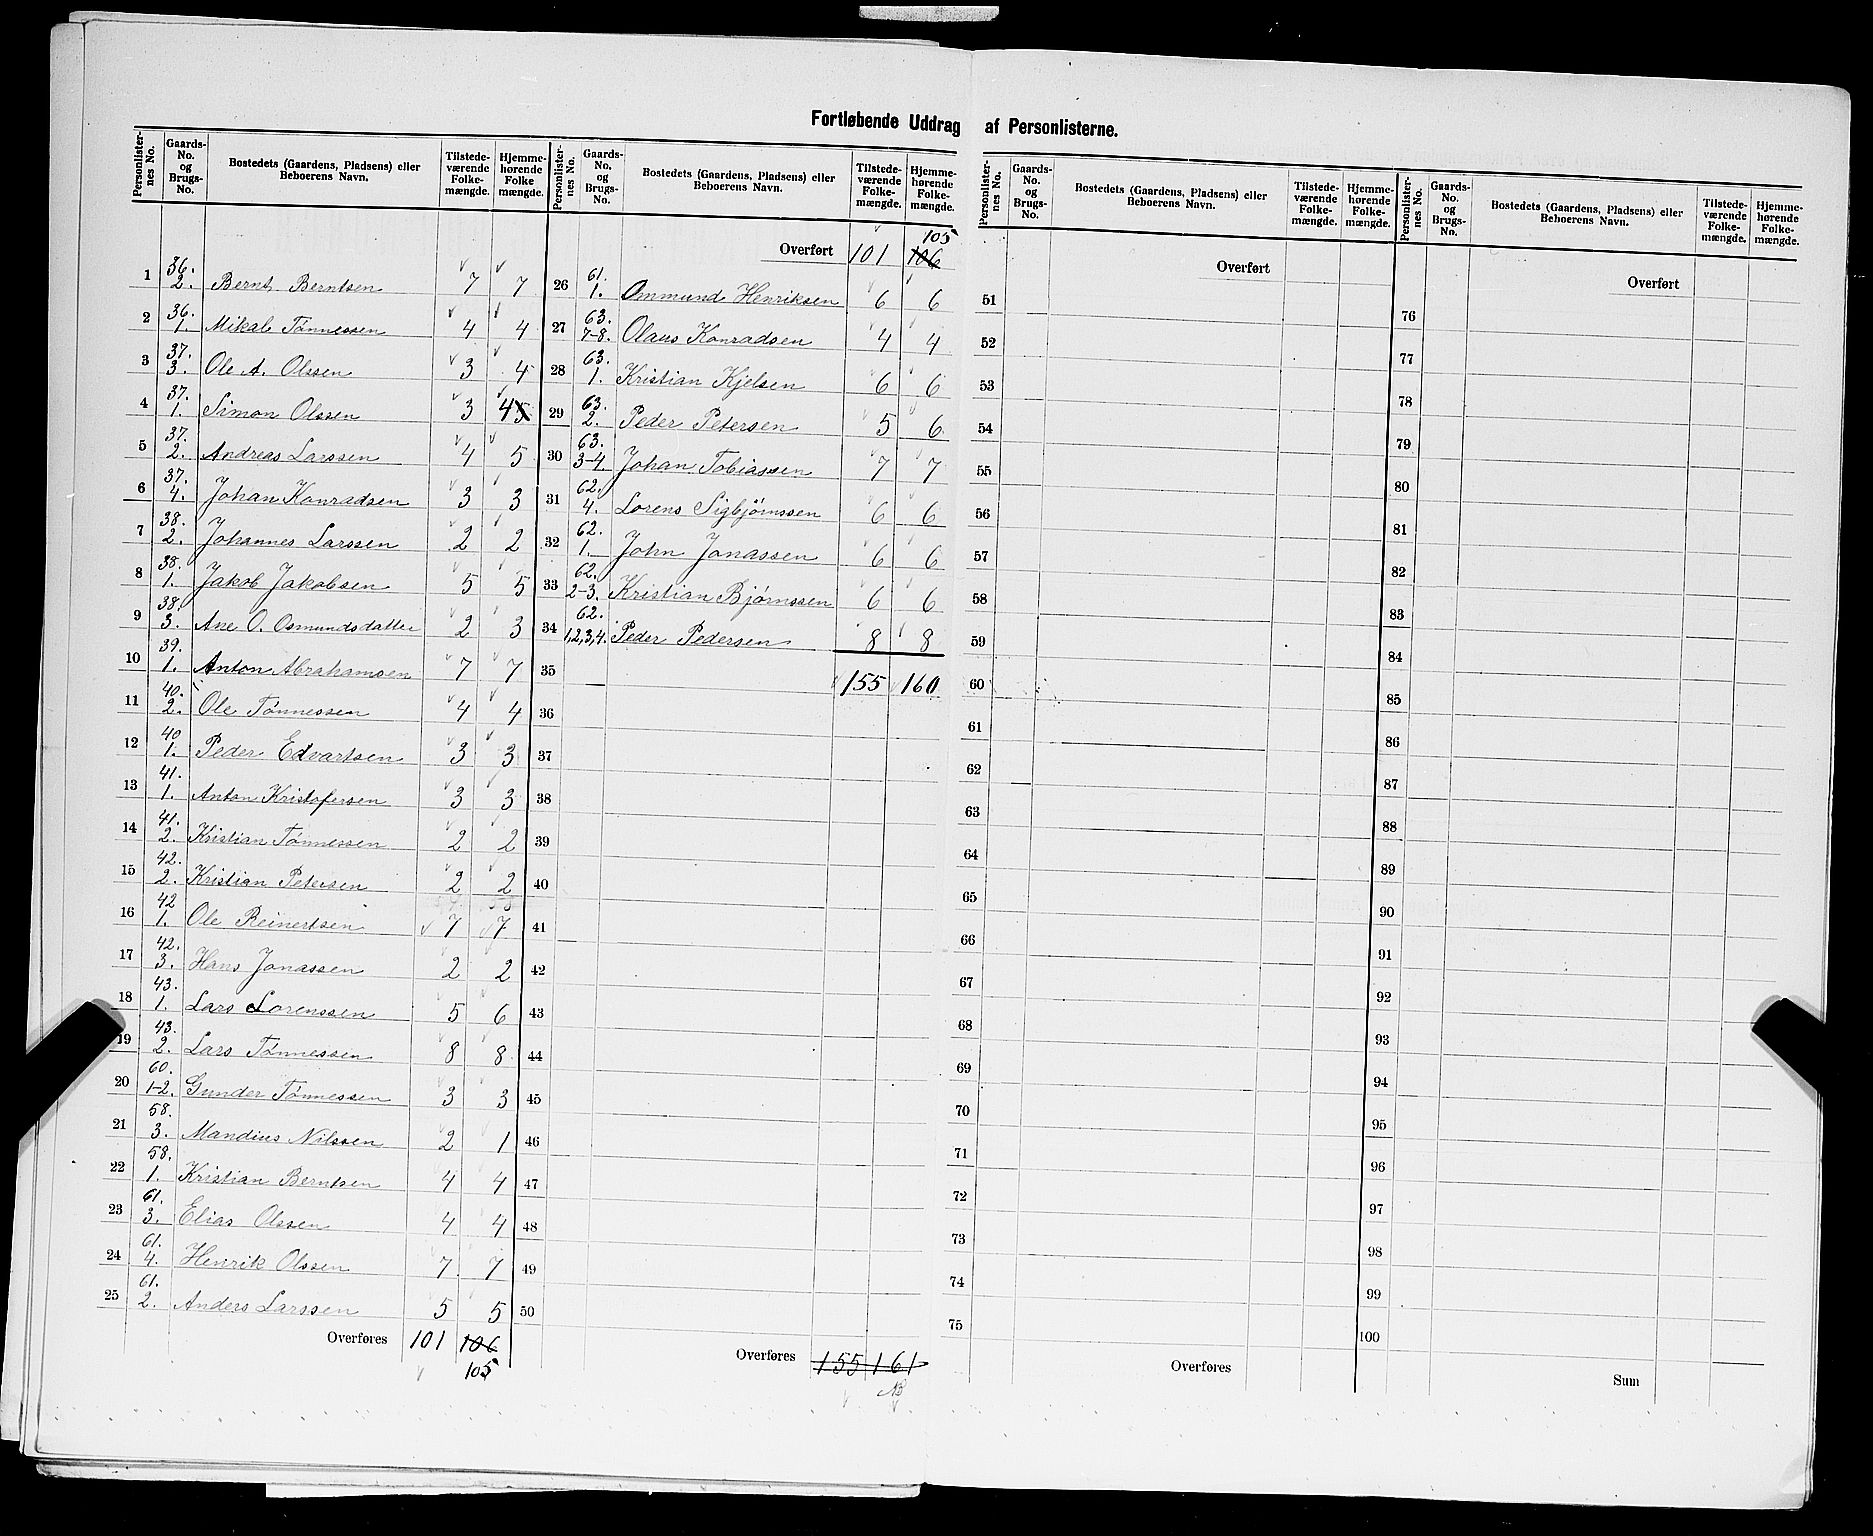 Fortløbende Uddrag af Personlisterne.
Personlisternes No. | Gaards-No. og Brugs-No. | Bostedets (Gaardens, Pladsens) eller Beboerens Navn. | Tilstedeværende Folkemængde. | Hjemmehørende Folkemængde.
1 | 36. 2. | Bernt Berntsen | 7 | 7
2 | 36. 1. | Mikal Tønnessen | 4 | 4
3 | 37. 3. | Ole A. Olssen | 3 | 4
4 | 37. 1. | Simon Olssen | 3 | 4 5
5 | 37. 2. | Andreas Larssen | 4 | 5
6 | 37. 4. | Johan Konradsen | 3 | 3
7 | 38. 2. | Johannes Larssen | 2 | 2
8 | 38. 1. | Jakob Jakobsen | 5 | 5
9 | 38. 3. | Ane O. Osmundsdatter | 2 | 3
10 | 39. 1. | Anton Abrahamsen | 7 | 7
11 | 40. 2. | Ole Tønnessen | 4 | 4
12 | 40 1. | Peder Edvartsen | 3 | 3
13 | 41. 1. | Anton Kristofersen | 3 | 3
14 | 41. 2. | Kristian Tønnessen | 2 | 2
15 | 42. 2. | Kristian Petersen | 2 | 2
16 | 42 1. | Ole Reinertsen | 7 | 7
17 | 42. 3. | Hans Jonassen | 2 | 2
18 | 43. 1. | Lars Lorenssen | 5 | 6
19 | 43. 2. | Lars Tønnessen | 8 | 8
20 | 60. 1-2. | Gunder Tønnessen | 3 | 3
21 | 58. 3. | Mandius Nilssen | 2 | 1
22 | 58. 1. | Kristian Berntsen | 4 | 4
23 | 61. 3. | Elias Olssen | 4 | 4
24 | 61. 4. | Henrik Olssen | 7 | 7
25 | 61. 2. | Anders Larssen | 5 | 5
Overføres | 101 | 106
105
Personlisternes No. | Gaards-No. og Brugs-No. | Bostedets (Gaardens, Pladsens) eller Beboerens Navn. | Tilstedeværende Folkemængde. | Hjemmehørende Folkemængde.
105
Overført | 101 | 106
26 | 61. 1. | Ommund Henriksen | 6 | 6
27 | 63. 7-8. | Olaus Konradsen | 4 | 4
28 | 63. 1. | Kristian Kjelsen | 6 | 6
29 | 63. 2. | Peder Petersen | 5 | 6
30 | 63. 3-4. | Johan Tobiassen | 7 | 7
31 | 62. 4. | Lorens Sigbjørnssen | 6 | 6
32 | 62. 1. | John Jonassen | 6 | 6
33 | 62. 2-3. | Kristian Bjørnssen | 6 | 6
34 | 62. 1,2,3,4. | Peder Pedersen | 8 | 8
35 | 155 | 160
36
37
38
39
40
41
42
43
44
45
46
47
48
49
50
Overføres | 155 | 161
NB
Personlisternes No. | Gaards-No. og Brugs-No. | Bostedets (Gaardens, Pladsens) eller Beboerens Navn. | Tilstedeværende Folkemængde. | Hjemmehørende Folkemængde.
Overført
51
52
53
54
55
56
57
58
59
60
61
62
63
64
65
66
67
68
69
70
71
72
73
74
75
Overføres
Personlisternes No. | Gaards-No. og Brugs-No. | Bostedets (Gaardens, Pladsens) eller Beboerens Navn. | Tilstedeværende Folkemængde. | Hjemmehørende Folkemængde.
Overført
76
77
78
79
80
81
82
83
84
85
86
87
88
89
90
91
92
93
94
95
96
97
98
99
100
Sum